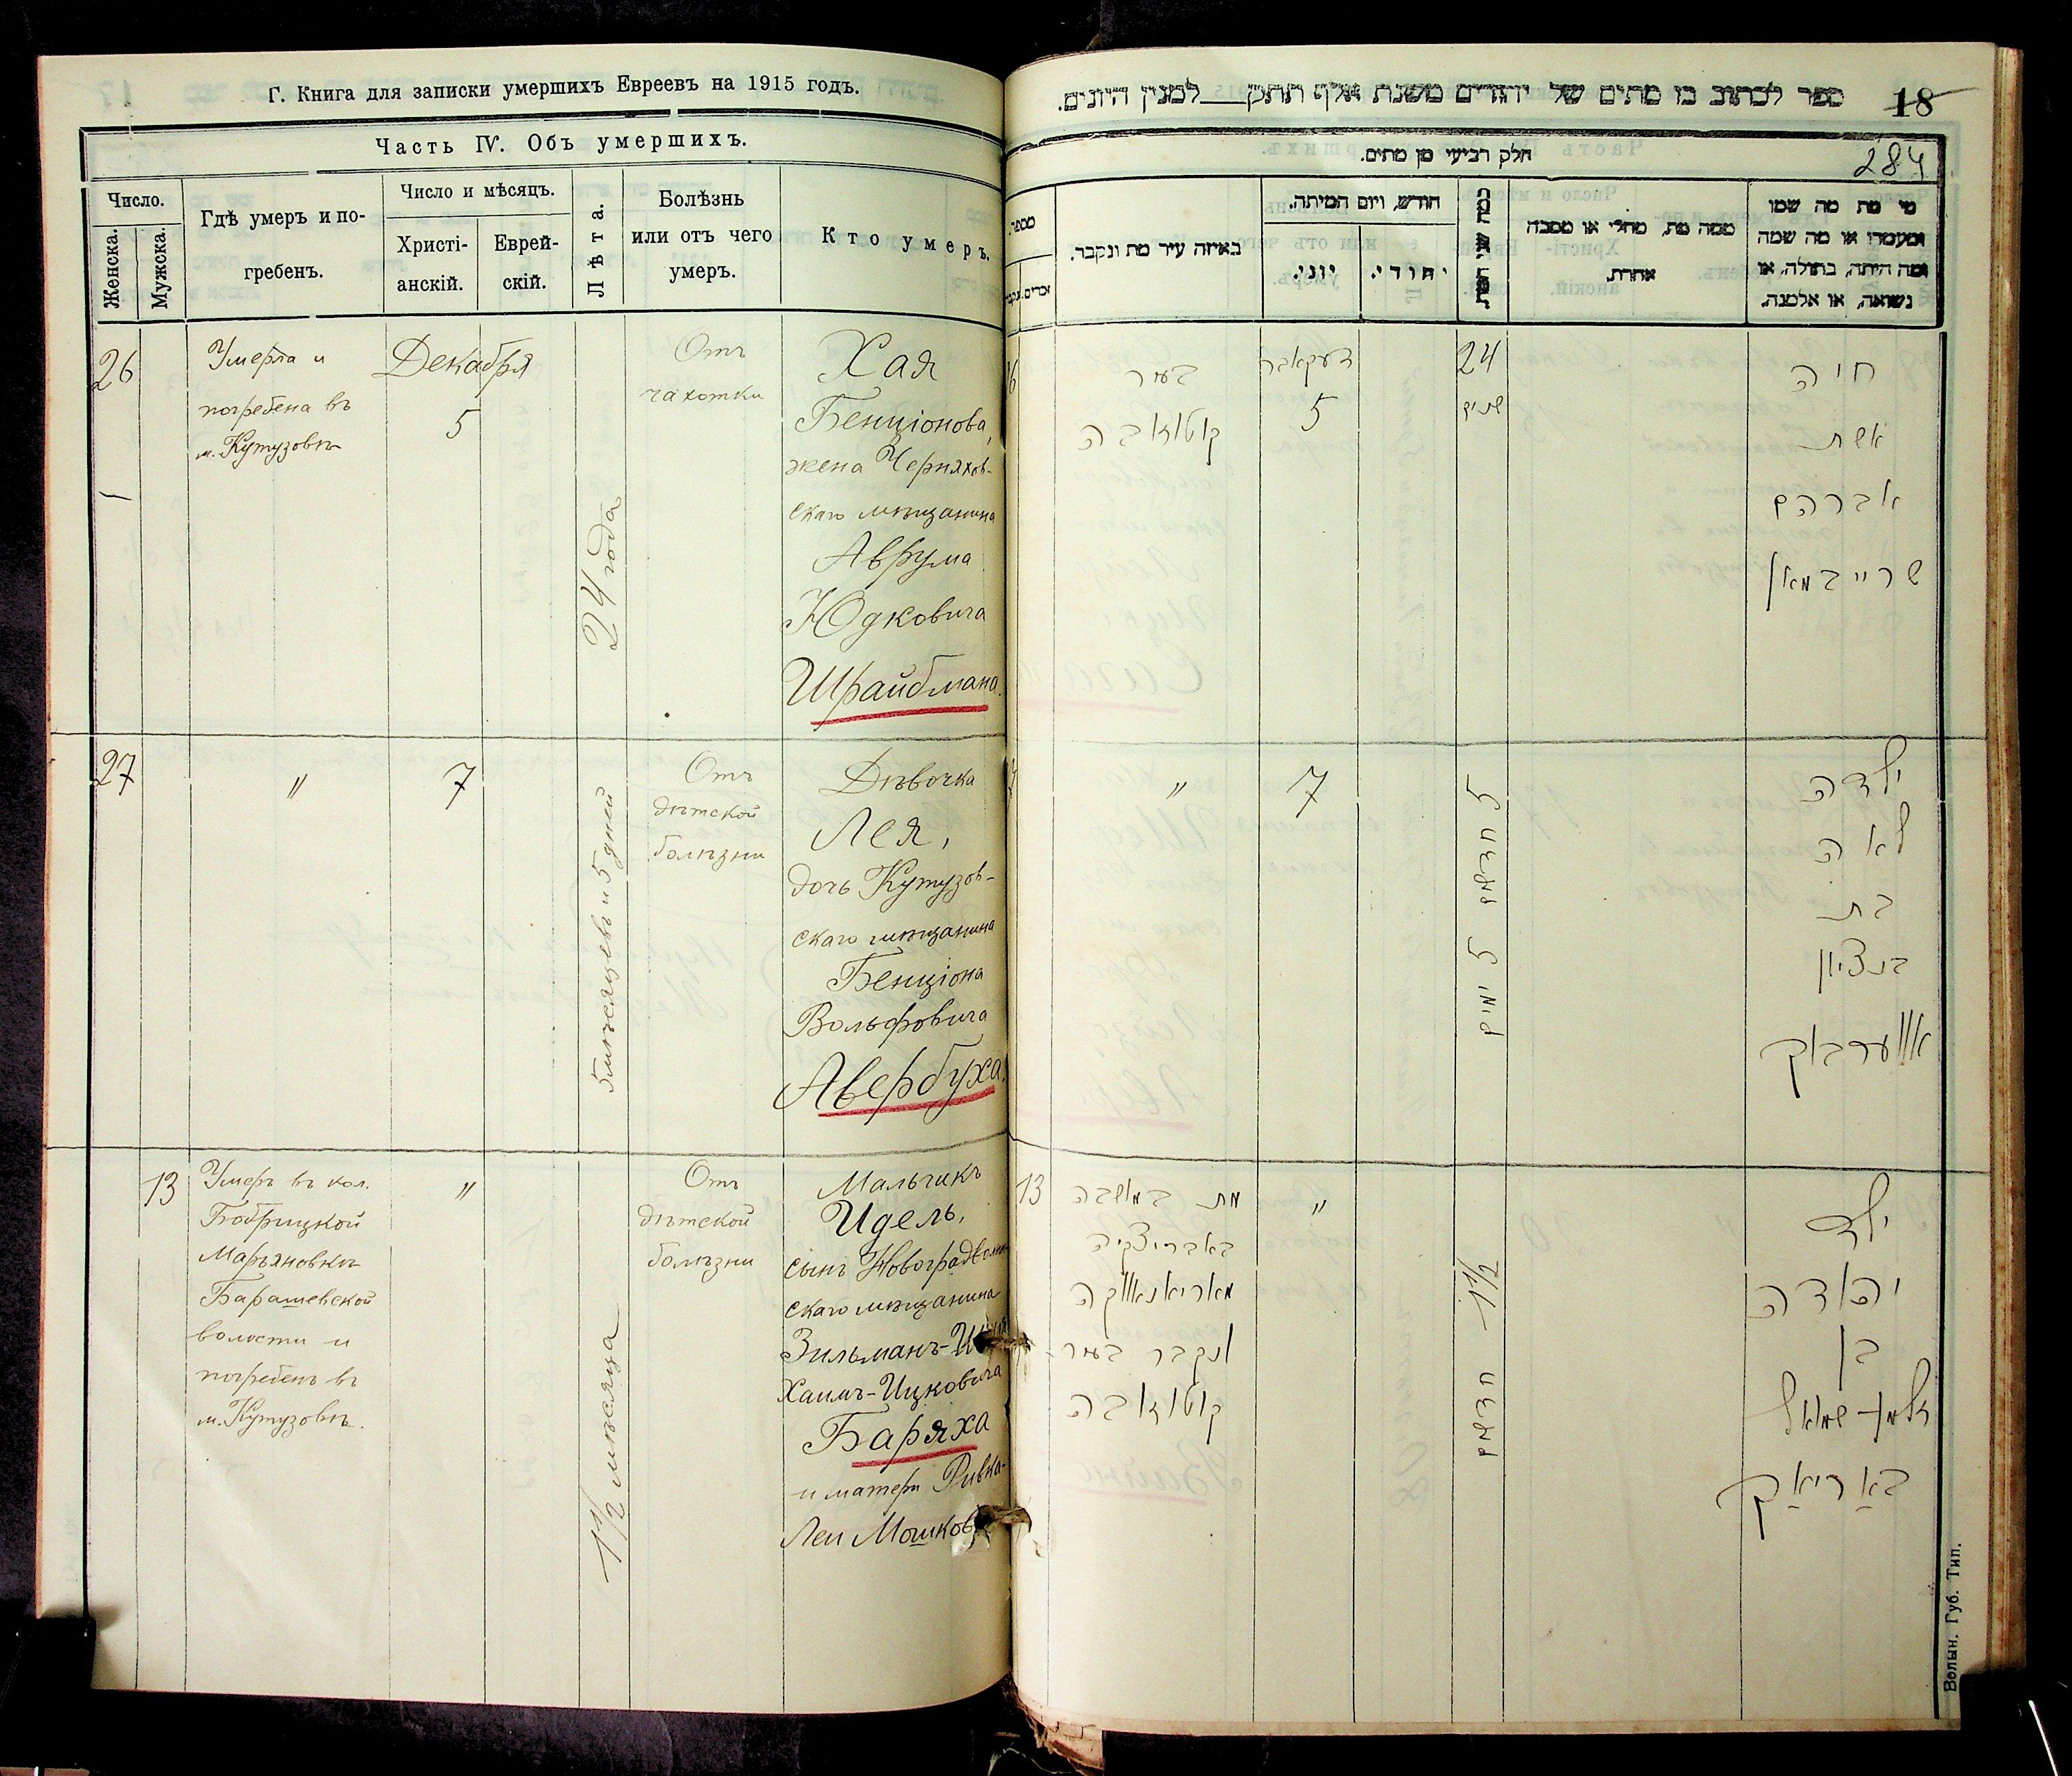 Г. Книга для записки умершихъ Евреевъ на 1915 годъ.
Часть IV. Объ умершихъ.
Число.
Женска.
Мужска.
Гдѣ умеръ и по-
гребенъ.
Число и мѣсяцъ.
Христі-
анскій.
Еврей-
скій.
Лѣта.
Болѣзнь
или отъ чего
умеръ.
Кто умеръ.
26
Умерла и
погребена въ
м. Кутузовкѣ
Декабря
5
24 года
Отъ
чахотки
Хая
Бенціонова,
жена Черняхов-
скаго мѣщанина
Аврума
Юдковича
Шрайбмана.
27
"
7
5 мѣсяцевъ и 5 дней
Отъ
дѣтской
болѣзни
Дѣвочка
Лея,
дочь Кутузов-
скаго мѣщанина
Бенціона
Вольфовича
Авербуха.
13
Умеръ въ кол.
Бобрицкой
Марьяновкѣ
Барашевской
волости и
погребенъ въ
м. Кутузовкѣ.
"
1 1/2 мѣсяца
Отъ
дѣтской
болѣзни
Мальчикъ
Идель,
сынъ
скаго мѣщанина
Зильманъ-
Хаимъ-Ицковича
Баряха
и матери Ривка-
Леи
ספר לכתוב בו מתים של יהודים משנת אלף תתק___למנין היונים.
18
284
חלק רביעי מן מתים.
מספר.
באיזה עיר מת ונקבר.
חודש, ויום המיתה.
יוני.
יהודי.
כמה שני חיותו
ממה מת, מחלי או מסבה
אחרת.
מי מת מה שמו
ומעמדו או מה שמה
ומה היתה, בתולה, או
נשואה, או אלמנה.
בעיר
קוטוזובה
דעקאבר
5
24
שנים
חיה
אשת
אברהם
שרייבמאן
"
7
5 חדשים 5 ימים
ילדה
לאה
בת
בנציון
אווערבוק
13
מת במושבה
באבריצקיה
מאריאנאווקה
ונקבר בעיר
קוטוזובה
"
1 1/2 חדשים
ילד
יהודה
בן
זלמן-שמואל
באריאק
Волын. Губ. Тип.